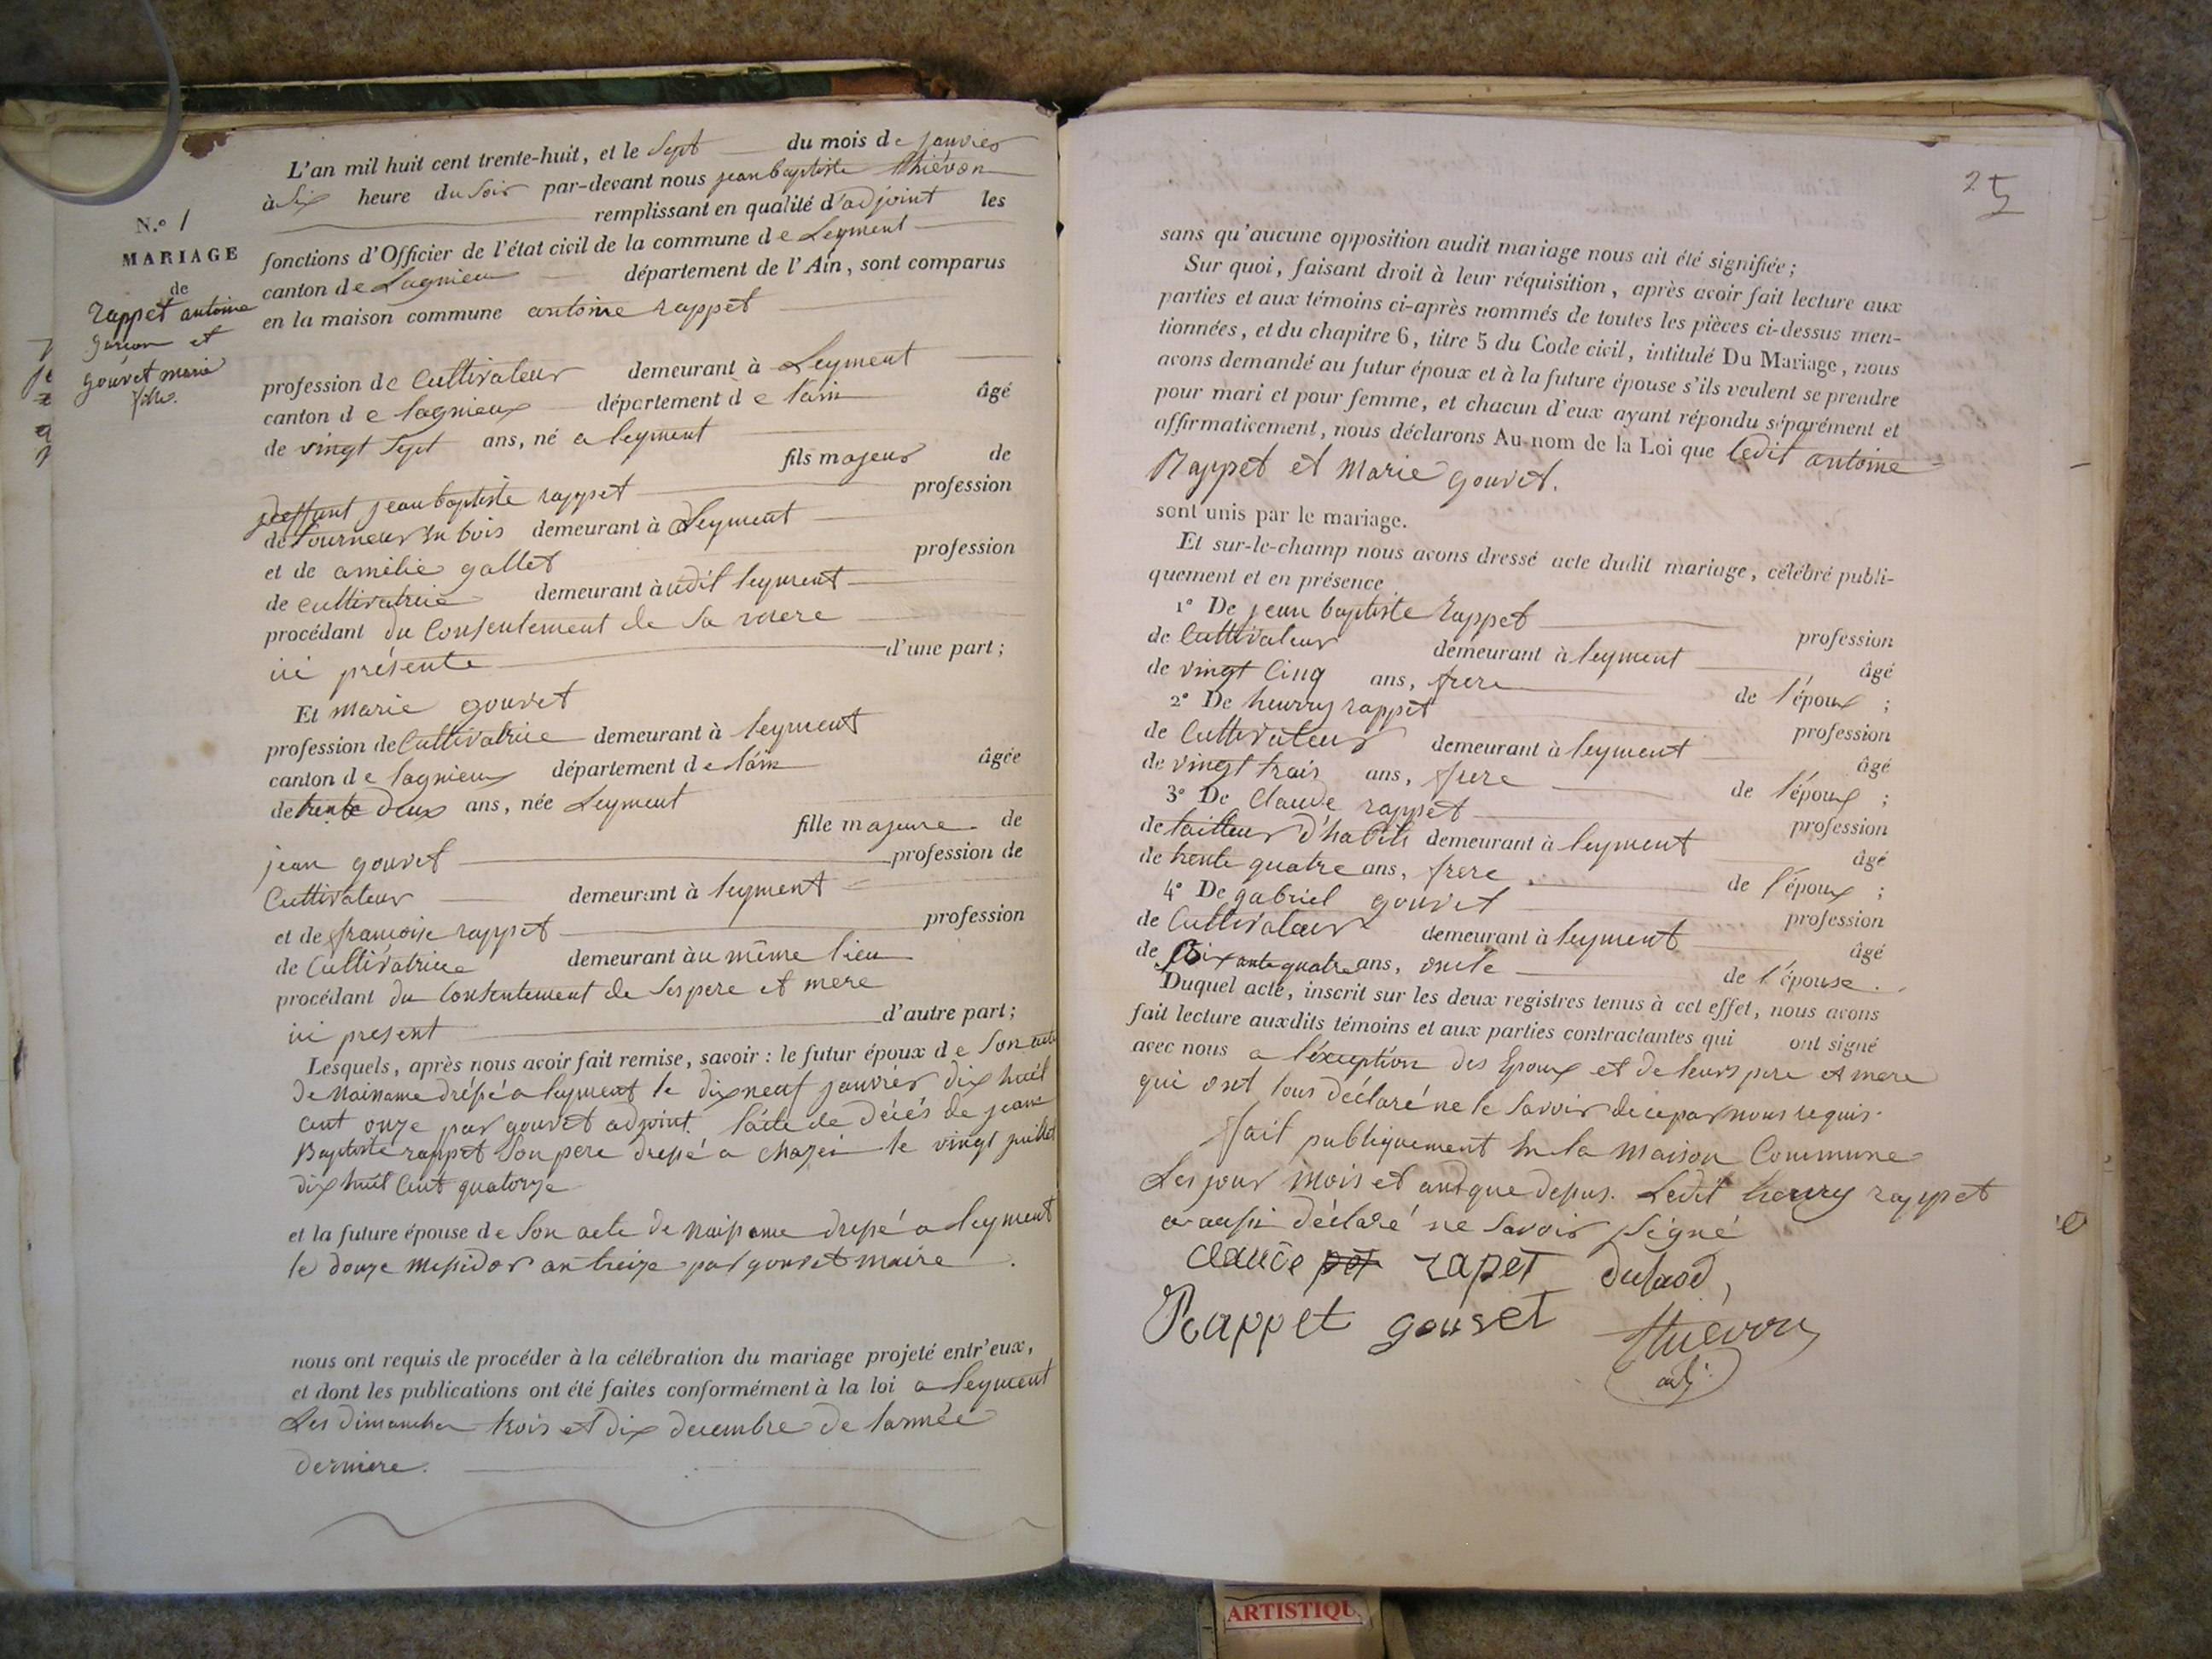 N.o 1
MARIAGE
de
rappet antoine
garson et
gouvet marie
fille.
L'an mil huit cent trente-huit, et le Sept du mois de janvier
à Six heure du Soir par-devant nous jean baptiste thiévon
remplissant en qualité d'adjoint les
fonctions d'Officier de l'état civil de la commune de Leyment
canton de Lagnieu département de l'Ain, sont comparus
en la maison commune antoine rappet
profession de Cultivateur demeurant à Leyment
canton de lagnieux département de l'ain âgé
de vingt Sept ans, né a leyment
fils majeur de
deffunt jean baptiste rappet profession
de tourneur en bois demeurant à Leyment
et de amélie gallet profession
de cultivatrice demeurant àudit leyment
procédant du Consentement de Sa mere
ici présente d'une part;
Et marie gouvet
profession de Cultivatrice demeurant à leyment
canton de lagnieux département de l'ain âgée
de trente deux ans, née Leyment
fille majeure de
jean gouvet profession de
Cultivateur demeurant à leyment
et de francoise rappet profession
de Cultivatrice demeurant àu même lieu
procédant du Consentement de Ses pere et mere
ici present d'autre part;
Lesquels, après nous avoir fait remise, savoir: le futur époux de Son acte
de Naissance dréssé a leyment le dix neuf janvier dix huit
cent onze par gouvet adjoint. l'acte de décés de jean
Baptiste rappet Son pere dressé a chazei le vingt juillet
dix huit Cent quatorze
et la future épouse de Son acte de naissance dressé a leyment
le douze messidor an treize par gouvet maire.
nous ont requis de procéder à la célébration du mariage projeté entr'eux,
et dont les publications ont été faites conformément à la loi a leyment
Les dimanches trois et dix decembre de l'année
derniere.
25
sans qu'aucune opposition audit mariage nous ait été signifiée;
Sur quoi, faisant droit à leur réquisition, après avoir fait lecture aux
parties et aux témoins ci-après nommés de toutes les pièces ci-dessus men-
tionnées, et du chapitre 6, titre 5 du Code civil, intitulé Du Mariage, nous
avons demandé au futur époux et à la future épouse s'ils veulent se prendre
pour mari et pour femme, et chacun d'eux ayant répondu séparément et
affirmativement, nous déclarons Au nom de la Loi que ledit antoine
Rappet et Marie gouvet.
sont unis par le mariage.
Et sur-le-champ nous avons dressé acte dudit mariage, célébré publi-
quement et en présence
1° De jean baptiste rappet profession
de Cultivateur demeurant à leyment âgé
de vingt Cinq ans, frere de l'époux;
2° De henry rappet profession
de Cultivateur demeurant à leyment âgé
de vingt trois ans, frere de l'époux;
3° De Claude rappet profession
de tailleur d'habits demeurant à leyment âgé
de trente quatre ans, frere de l'époux;
4° De gabriel gouvet profession
de Cultivateur demeurant à leyment âgé
de Soixante quatre ans, oncle de l'épouse.
Duquel acte, inscrit sur les deux registres tenus à cet effet, nous avons
fait lecture auxdits témoins et aux parties contractantes qui ont signé
avec nous a l'éxception des Epoux et de leurs pere et mere
qui ont tous déclaré ne le Savoir de ce par nous requis.
fait publiquement En la Maison Commune
Les jour Mois et an que depus. Ledit henry rappet
a aussi déclaré ne Savoir Signé
claude rapet dufaod,
Rappet gouvet thiévon
adj.
ARTISTIQU